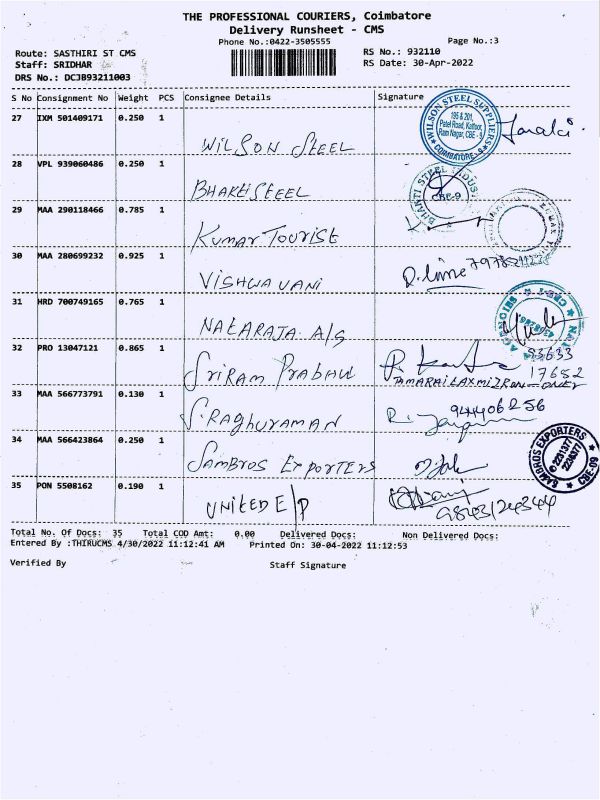 THE PROFESSIONAL COURIERS, Coimbatore
Delivery Runsheet - CMS
Phone No.:0422-3505555
Page No.:3
Route: SASTHIRI ST CMS
RS No.: 932110
Staff: SRIDHAR
RS Date: 30-Apr-2022
DRS No.: DCJ893211003
S No Consignment No Weight PCS Consignee Details Signature
27 IXM 501409171 0.250 1
WILSON STEEL
WILSON STEEL SUPPLIERS
195 & 201,
Patel Road, Kattoor,
Ram Nagar, CBE - 9
COIMBATORE - 9
28 VPL 939060486 0.250 1
BHAKTI STEEL
BHAKTI STEEL INDUS
CBE-9
29 MAA 290118466 0.785 1
KUMAR TOURIST
30 MAA 280699232 0.925 1
VISHWA VANI
31 HRD 700749165 0.765 1
NATARAJA A/S
AGENCIES
CBE-1
32 PRO 13047121 0.865 1
SRIRAM PRABHU
93633
17652
33 MAA 566773791 0.130 1
S. RAGHURAMAN
944406256
34 MAA 566423864 0.250 1
SAMBROS EXPORTERS
SAMBROS EXPORTERS
CBE-09
35 PON 5508162 0.190 1
UNITED E/P
Total No. Of Docs: 35 Total COD Amt: 0.00 Delivered Docs: Non Delivered Docs:
Entered By :THIRUCMS 4/30/2022 11:12:41 AM Printed On: 30-04-2022 11:12:53
Verified By Staff Signature